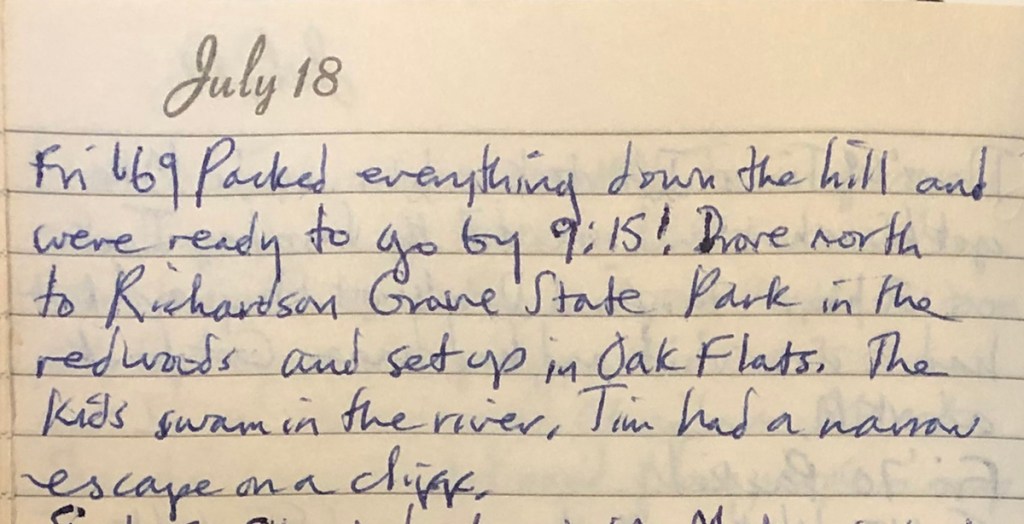 July 18
Fri '69 Packed everything down the hill and
were ready to go by 9:15! Drove north
to Richardson Grove State Park in the
redwoods and set up in Oak Flats. The
kids swam in the river, Tim had a narrow
escape on a cliff.